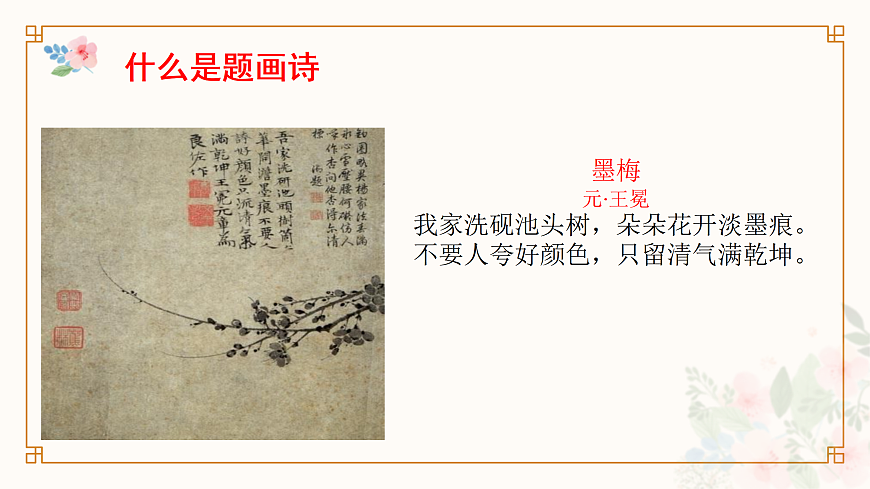 什么是题画诗
墨梅
元·王冕
我家洗砚池头树，朵朵花开淡墨痕。
不要人夸好颜色，只留清气满乾坤。
吾家洗研池頭樹箇〻
華開澹墨痕不要人
誇好顏色只流清气
滿乾坤王冕元章為
良佐作